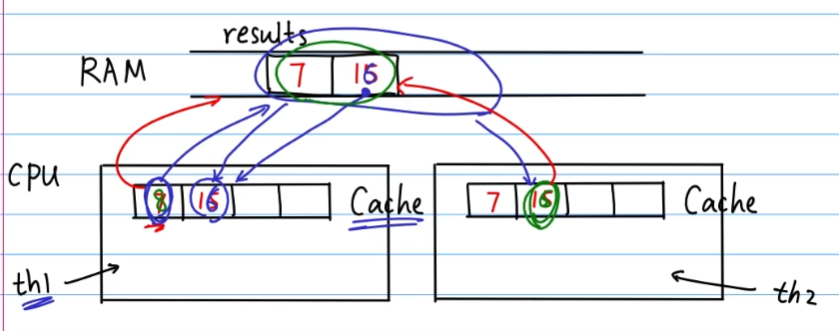 results
RAM 7 15
CPU
8 15 Cache 7 15 Cache
th1 th2